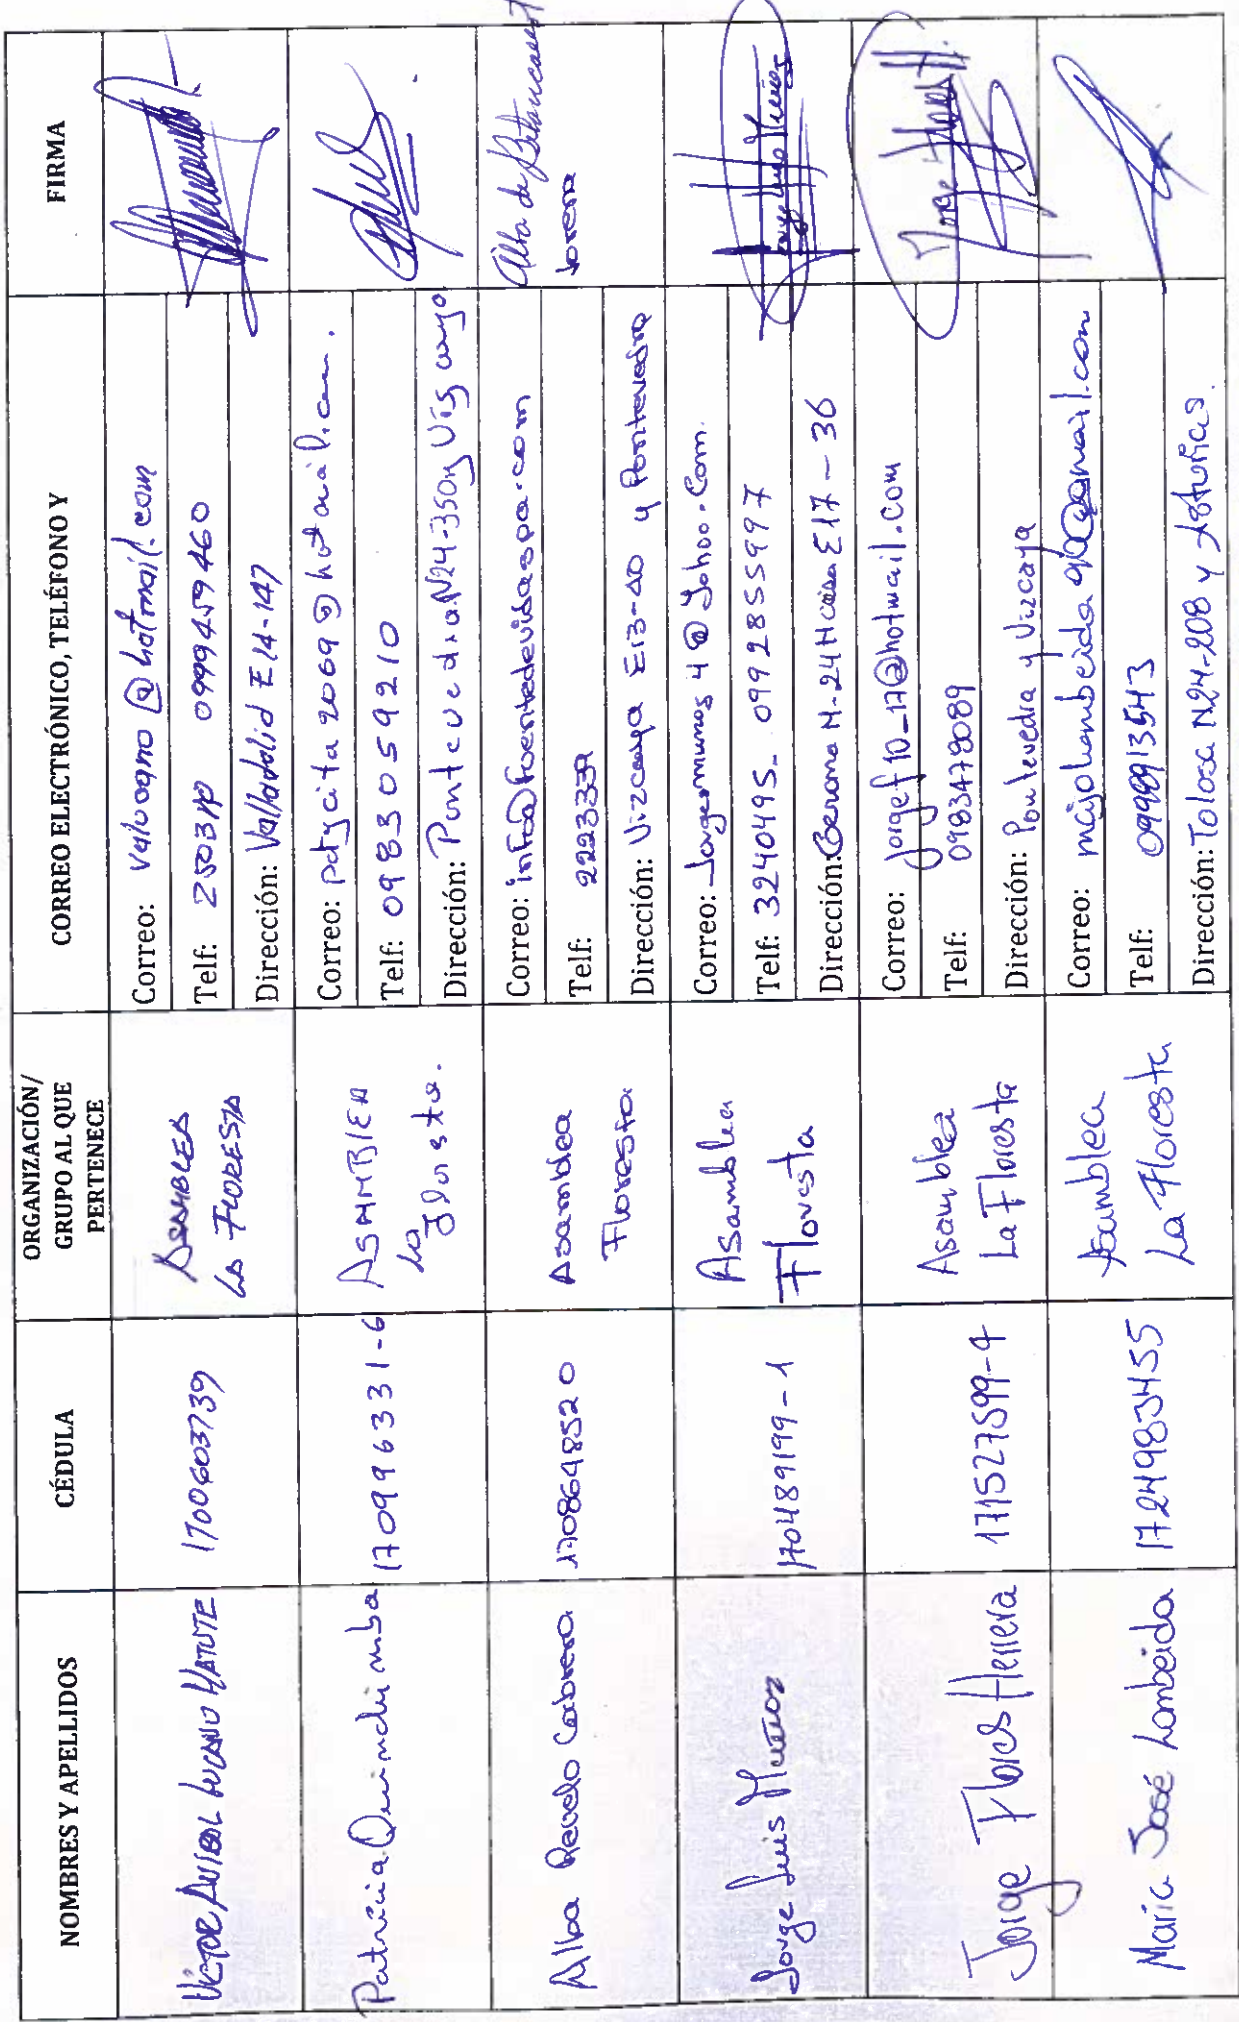 NOMBRES Y APELLIDOS
CÉDULA
ORGANIZACIÓN/
GRUPO AL QUE
PERTENECE
CORREO ELECTRÓNICO, TELÉFONO Y
FIRMA
VICTOR ANIBAL LUCANO MATUTE
1700603739
ASAMBLEA
LA FLORESTA
Correo: valucano@hotmail.com
Telf: 2503110 0999459460
Dirección: Valladolid E14-147
Patricia Quindimba
17099633 1-6
ASAMBLEA
La Floresta.
Correo: patycita2069@hotmail.com.
Telf: 0983059210
Dirección: Pontevedra N24-350 y Vizcaya
Alba Revelo Cabrera
1708648520
Asamblea
Floresta
Correo: info@fuentedevidaspa.com
Telf: 2223339
Dirección: Vizcaya E13-40 y Pontevedra
Alba de Betancourt
Jorge Luis Muñoz
170489199-1
Asamblea
Floresta
Correo: Jorgemunos4@Yahoo.Com.
Telf: 3240495- 0992855997
Dirección: Gerona N-24H Casa E17-36
Jorge Luis Muñoz
Jorge Flores Herrera
171527599-4
Asamblea
La Floresta
Correo: jorgef10_17@hotmail.com
Telf: 0983479089
Dirección: Pontevedra y Vizcaya
Jorge Flores H.
María José Lombeida
1724983455
Asamblea
La Floresta
Correo: majolombeida91@gmail.com
Telf: 0999913543
Dirección: Tolosa N24-208 y Asturias.